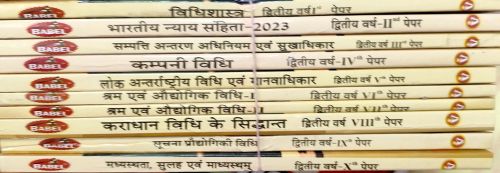 BABEL विधिशास्त्र द्वितीय वर्ष Ist पेपर
BABEL भारतीय न्याय संहिता-2023 द्वितीय वर्ष-IInd पेपर
BABEL सम्पत्ति अन्तरण अधिनियम एवं सुखाधिकार द्वितीय वर्ष IIIrd पेपर
BABEL कम्पनी विधि द्वितीय वर्ष-IVth पेपर
BABEL लोक अन्तर्राष्ट्रीय विधि एवं मानवाधिकार द्वितीय वर्ष Vth पेपर
BABEL श्रम एवं औद्योगिक विधि-I द्वितीय वर्ष VIth पेपर
BABEL श्रम एवं औद्योगिक विधि-II द्वितीय वर्ष VIIth पेपर
BABEL कराधान विधि के सिद्धान्त द्वितीय वर्ष VIIIth पेपर
BABEL सूचना प्रौद्योगिकी विधि द्वितीय वर्ष-IXth पेपर
BABEL मध्यस्थता, सुलह एवं माध्यस्थम् द्वितीय वर्ष-Xth पेपर